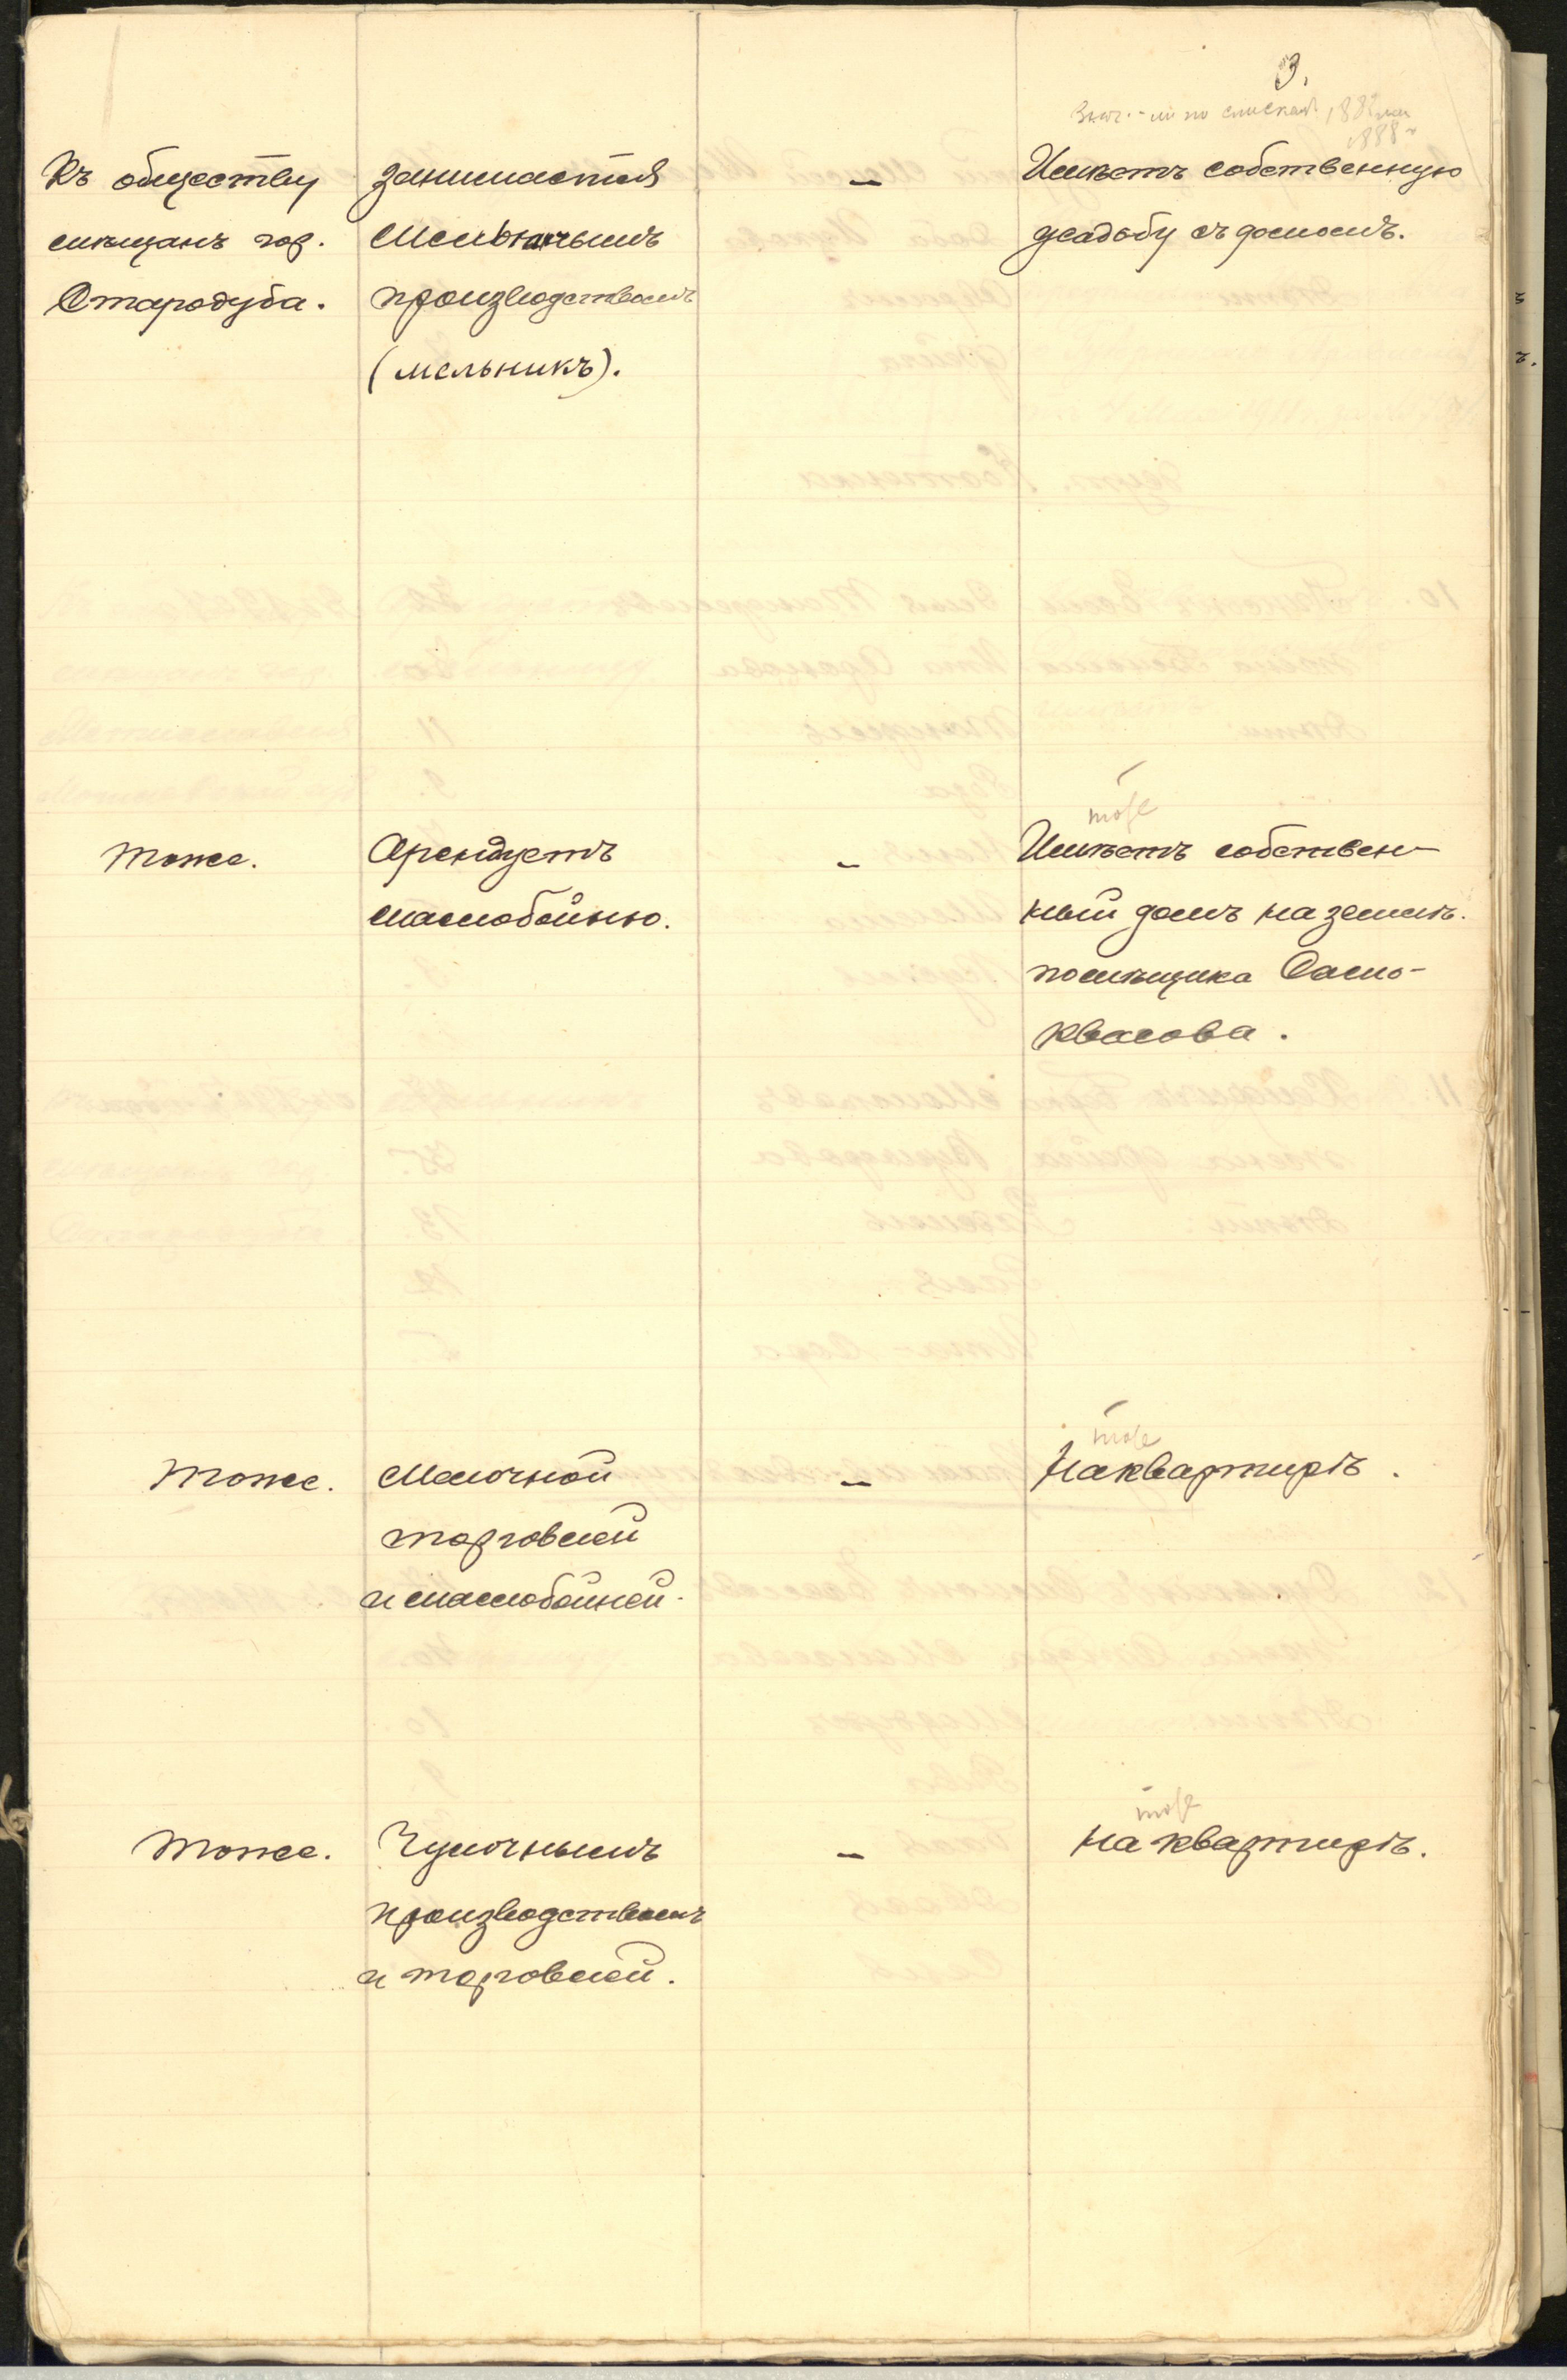 3.
по спискам 188
1888 г
Къ обществу
мѣщанъ гор.
Стародуба.
занимается
Мельничнымъ
производствомъ
(мельникъ).
—
Имѣетъ собственную
усадьбу съ домомъ.
тоже.
Арендуетъ
маслобойню.
—
тоже
Имѣетъ собствен-
ный домъ на землѣ.
помѣщика Само-
квасова.
тоже.
Мелочной
торговлей
и маслобойней.
—
тоже
На квартирѣ.
тоже.
Чулочнымъ
производствомъ
и торговлей.
—
тоже
на квартирѣ.